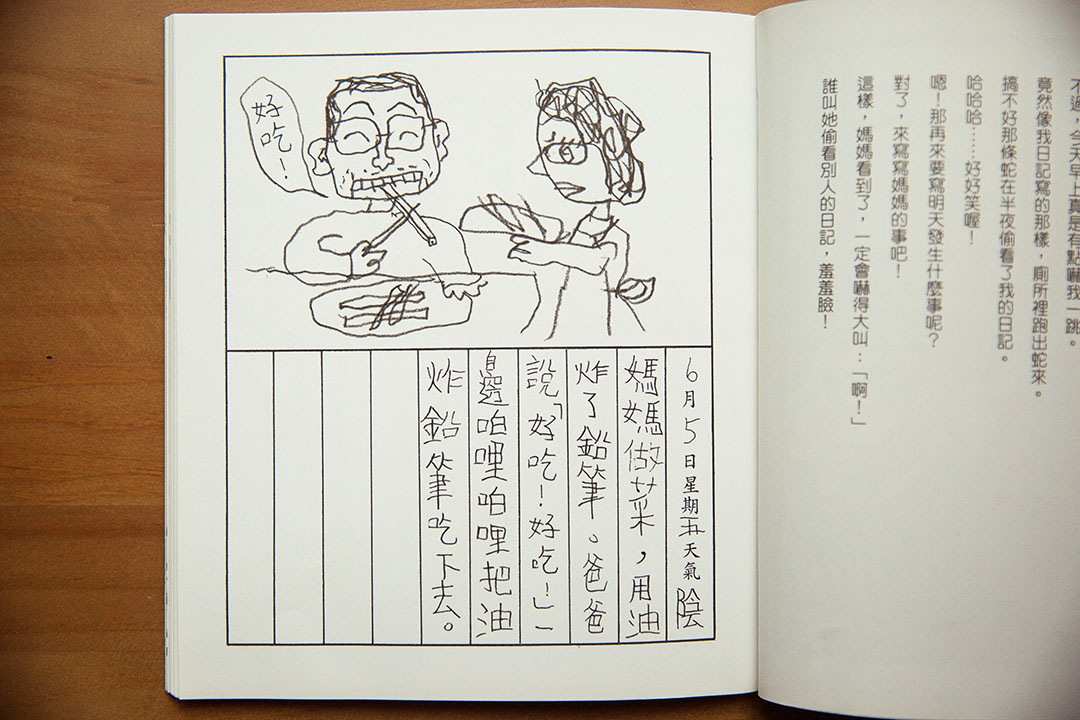 不過，今天早上真是有點嚇我一跳。
竟然像我日記寫的那樣，廁所裡跑出蛇來。
搞不好那條蛇在半夜偷看了我的日記。
哈哈哈……好好笑喔！
嗯！那再來要寫明天發生什麼事呢？
對了，來寫寫媽媽的事吧！
這樣，媽媽看到了，一定會嚇得大叫：「啊！」
誰叫她偷看別人的日記，羞羞臉！
好吃！
6月5日星期五天氣陰
媽媽做菜，用油
炸了鉛筆。爸爸
說「好吃！好吃！」一
邊咱哩咱哩把油
炸鉛筆吃下去。